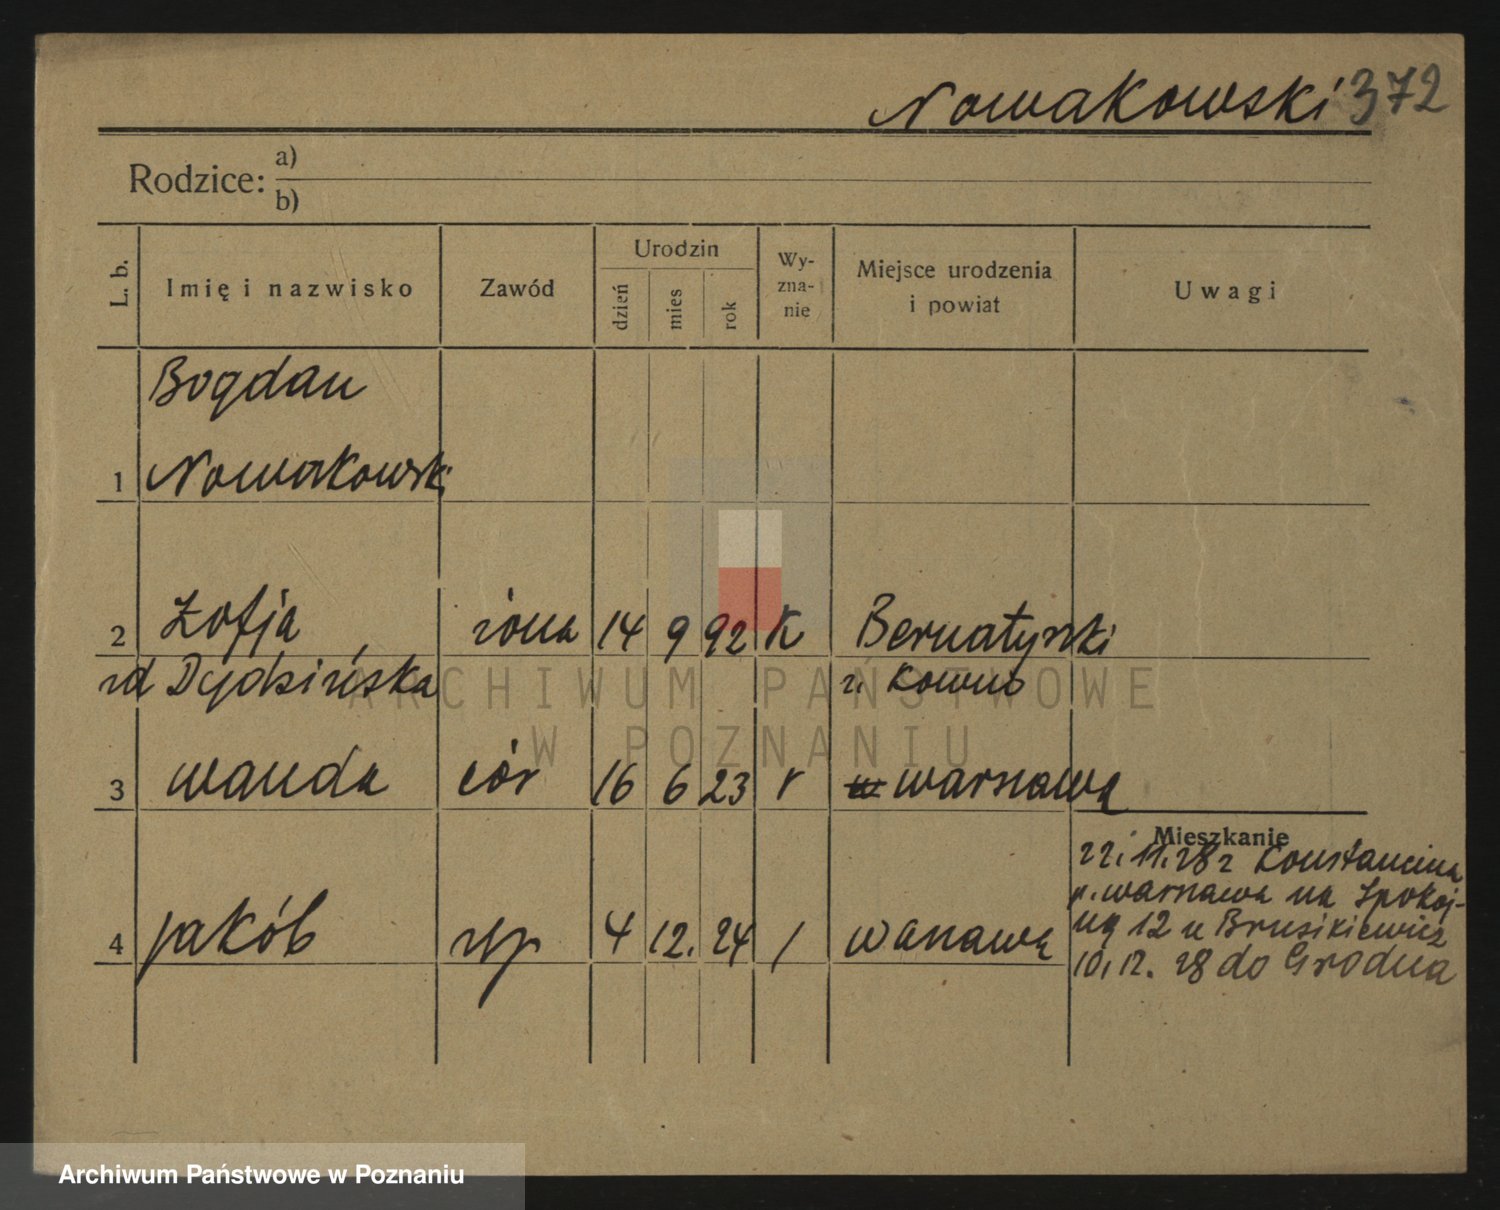 Nowakowski 372
Rodzice: a)
b)
L. b. Imię i nazwisko Zawód Urodzin dzień mies rok Wy-zna-nie Miejsce urodzenia i powiat Uwagi
Bogdan
1 Nowakowski
2 Zofja żona 14 9 92 K Bernatynski
zd Dydzińska z. Kowno
3 Wanda cór 16 6 23 r Warszawa
Mieszkanie
22.11.28 z Konstancina
p. Warszawa na Spokoj-
4 Jakób syn 4 12. 24 / Warszawa
ną 12 u Brusikiewicz
10.12. 28 do Grodna
ARCHIWUM PAŃSTWOWE
W POZNANIU
Archiwum Państwowe w Poznaniu